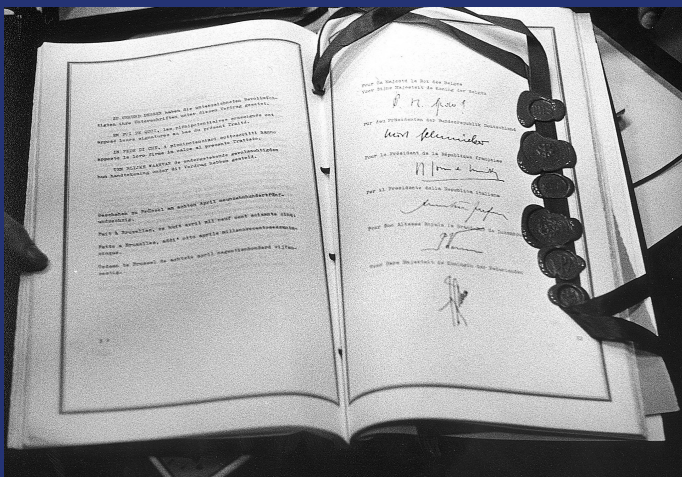 ZU URKUND DESSEN haben die unterzeichneten Bevollmäch-
tigten ihre Unterschriften unter diesen Vertrag gesetzt.
EN FOI DE QUOI, les plénipotentiaires soussignés ont
apposé leurs signatures au bas du présent Traité.
IN FEDE DI CHE, i plenipotenziari sottoscritti hanno
apposto le loro firme in calce al presente Trattato.
TEN BLIJKE WAARVAN de ondergetekende gevolmachtigden
hun handtekening onder dit Verdrag hebben gesteld.
Geschehen zu Brüssel am achten April neunzehnhundertfünf-
undsechzig.
Fait à Bruxelles, le huit avril mil neuf cent soixante cinq.
Fatto a Bruxelles, addi' otto aprile millenovecentosessanta-
cinque.
Gedaan te Brussel de achtste april negentienhonderd vijfen-
zestig.
Pour Sa Majesté le Roi des Belges
Voor Zijne Majesteit de Koning der Belgen
Für den Präsidenten der Bundesrepublik Deutschland
Pour le Président de la République française
Per il Presidente della Repubblica italiana
Pour Son Altesse Royale le Grand-Duc de Luxembourg
Voor Hare Majesteit de Koningin der Nederlanden